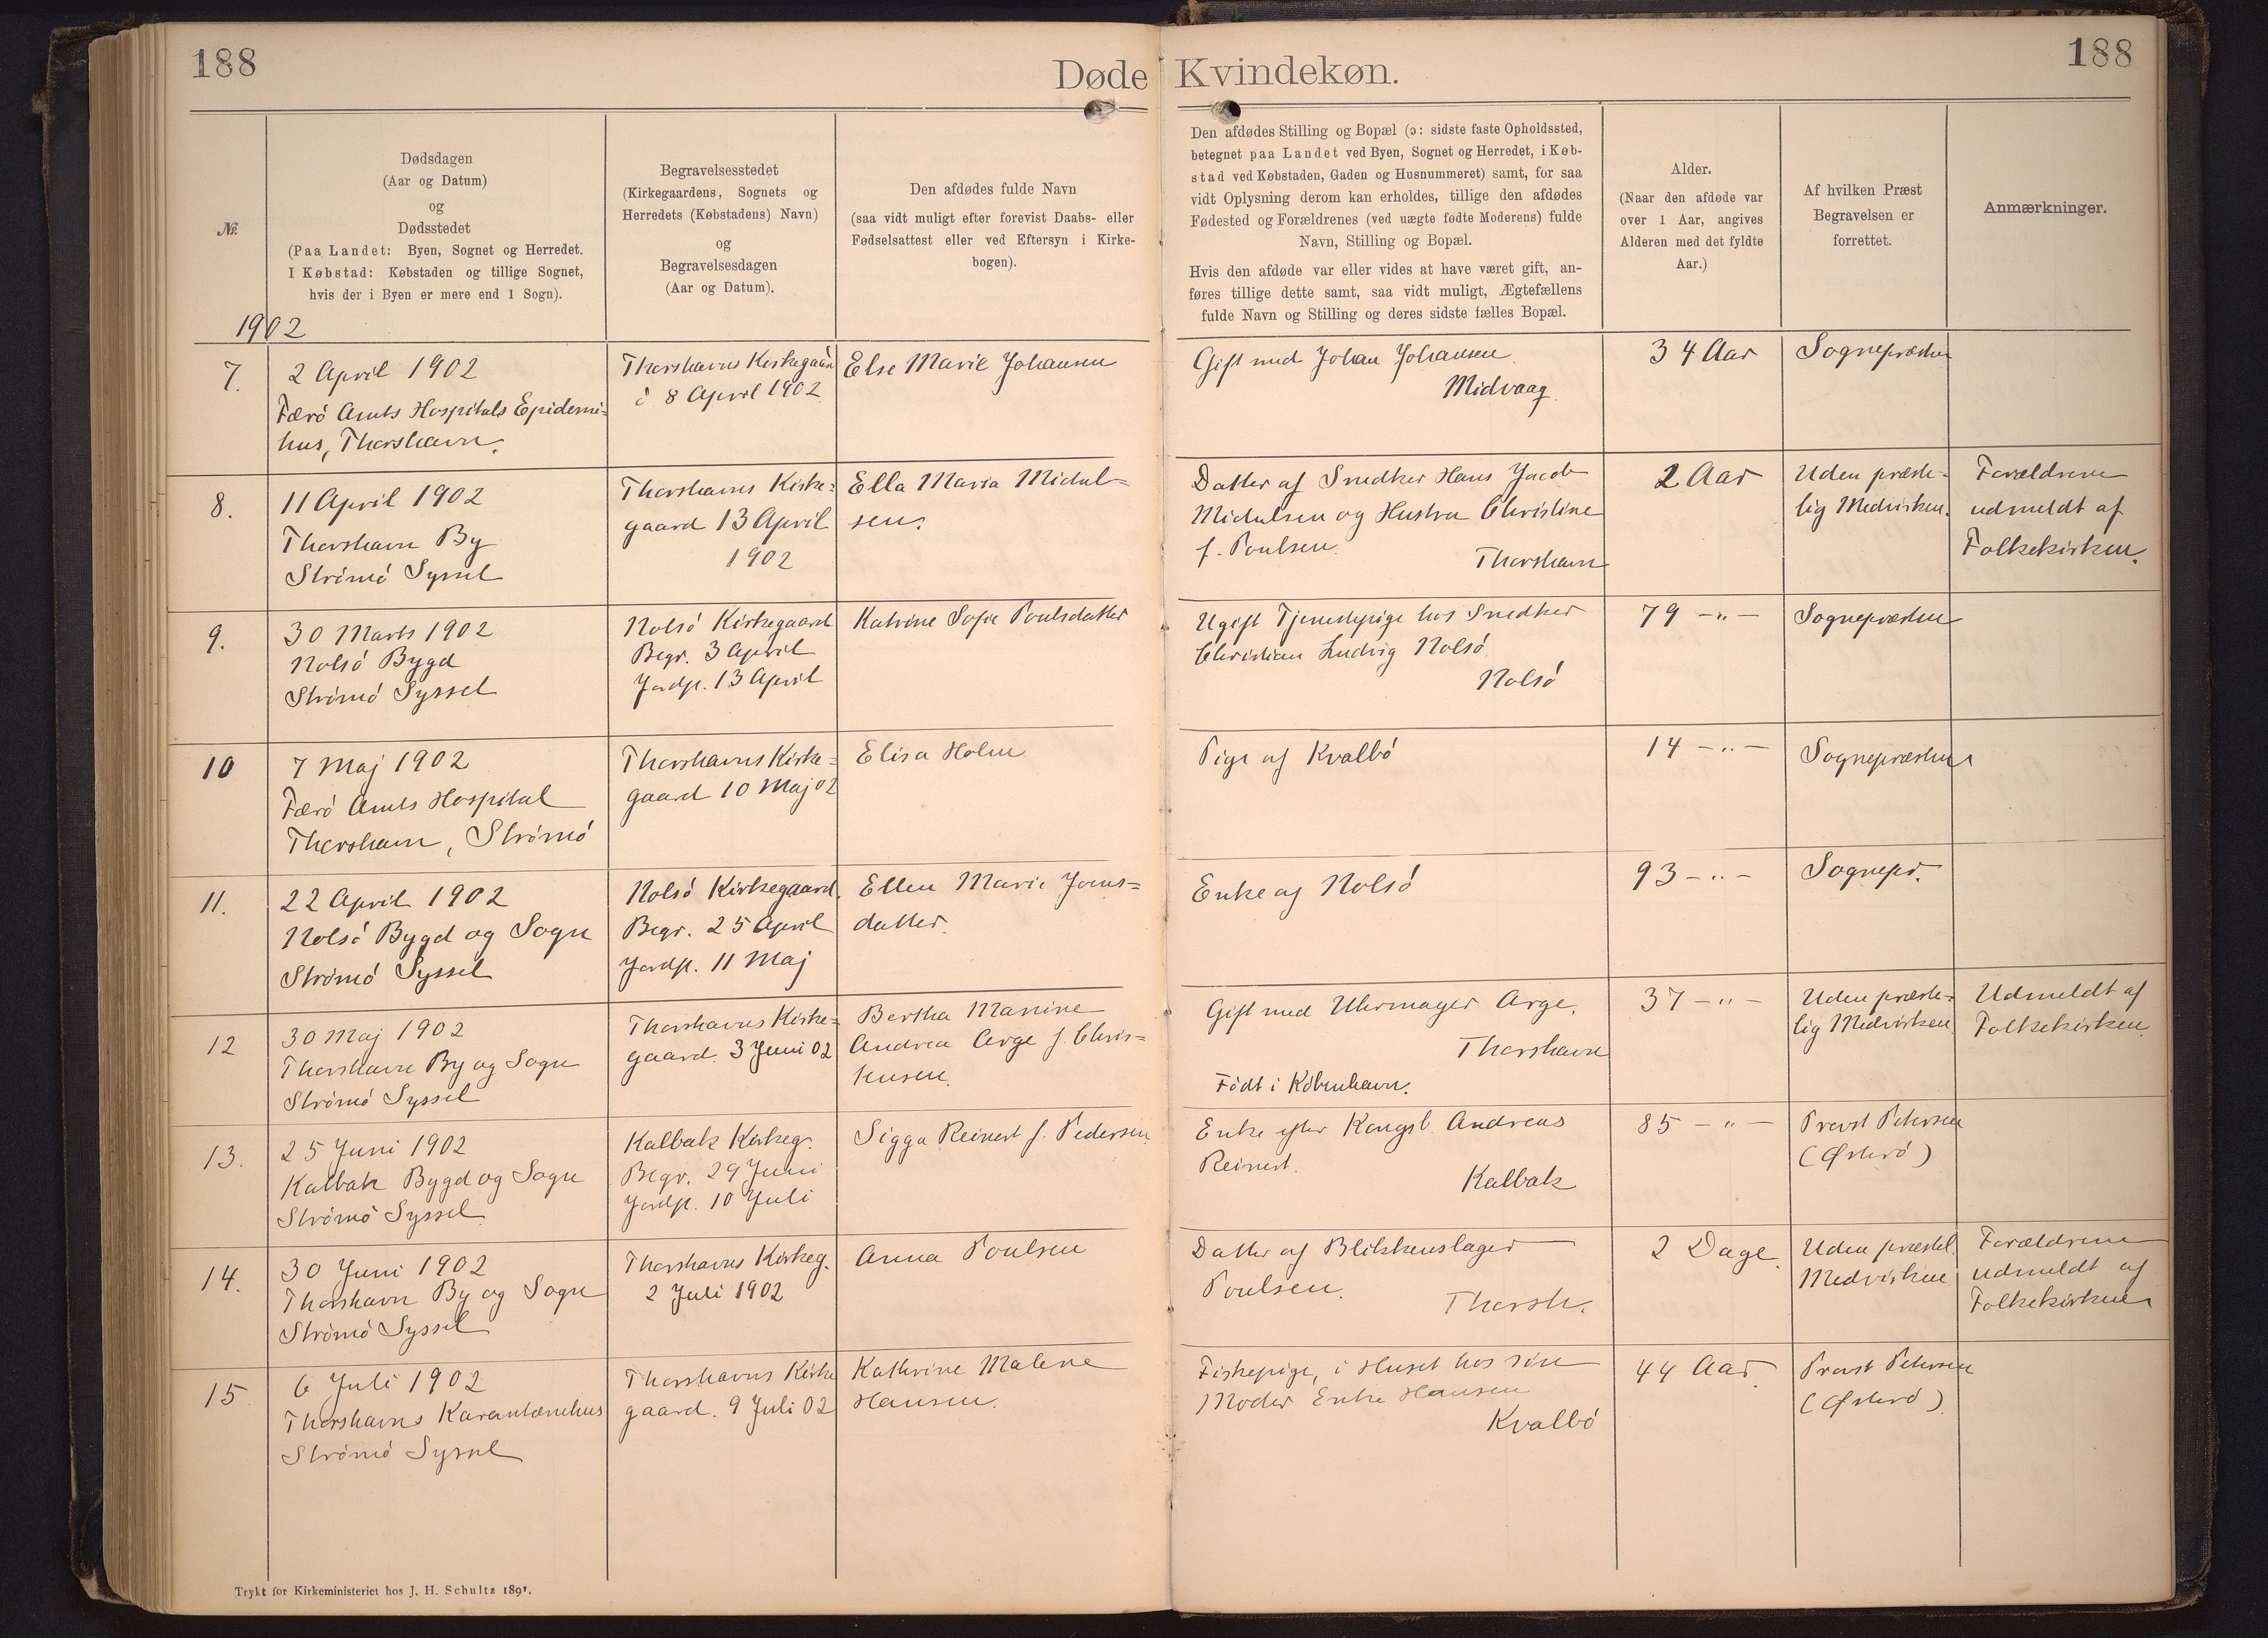 188
188
Døde Kvindekøn.
№.
Dødsdagen
(Aar og Datum)
og
Dødsstedet
(Paa Landet: Byen, Sognet og Herredet.
I Købstad: Købstaden og tillige Sognet,
hvis der i Byen er mere end 1 Sogn).
Begravelsesstedet
(Kirkegaardens, Sognets og
Herredets (Købstadens) Navn)
og
Begravelsesdagen
(Aar og Datum).
Den afdødes fulde Navn
(saa vidt muligt efter forevist Daabs- eller
Fødselsattest eller ved Eftersyn i Kirke-
bogen).
Den afdødes Stilling og Bopæl (ɔ: sidste faste Opholdssted,
betegnet paa Landet ved Byen, Sognet og Herredet, i Køb-
stad ved Købstaden, Gaden og Husnummeret) samt, for saa
vidt Oplysning derom kan erholdes, tillige den afdødes
Fødested og Forældrenes (ved uægte fødte Moderens) fulde
Navn, Stilling og Bopæl.
Hvis den afdøde var eller vides at have været gift, an-
føres tillige dette samt, saa vidt muligt, Ægtefællens
fulde Navn og Stilling og deres sidste fælles Bopæl.
Alder.
(Naar den afdøde var
over 1 Aar, angives
Alderen med det fyldte
Aar.)
Af hvilken Præst
Begravelsen er
forrettet.
Anmærkninger.
1902
7.
2 April 1902
Færö Amts Hospitals Epidemi=
hus, Thorshavn.
Thorshavns Kirkegaard
8 April 1902
Else Marie Johansen
Gift med Johan Johansen
Midvaag.
34 Aar
Sognepræsten
8.
11 April 1902
Thorshavn By
Strömö Syssel
Thorshavns Kirke=
gaard 13 April
1902
Ella Maria Michel=
sen.
Datter af Snedker Hans Jacob
Michelsen og Hustru Christine
f. Poulsen.
Thorshavn
2 Aar
Uden præste=
lig Medvirken.
Forældrene
udmeldt af
Folkekirken.
9.
30 Marts 1902
Nolsö Bygd
Strömö Syssel
Nolsö Kirkegaard
Begr. 3 April
Jordp. 13 April
Katrine Sofie Poulsdatter
Ugift Tjenestepige hos Snedker
Christian Ludvig Nolsö
Nolsö
79 -„-
Sognepræsten
10
7 Maj 1902
Færö Amts Hospital
Thorshavn, Strömö
Thorshavns Kirke=
gaard 10 Maj 02
Elisa Holm
Pige af Kvalbö
14 -„-
Sognepræsten
11.
22 April 1902
Nolsö Bygd og Sogn
Strömö Syssel
Nolsö Kirkegaard.
Begr. 25 April
Jordp. 11 Maj
Ellen Marie Joens=
datter.
Enke af Nolsö
93 -„-
Sognepr.
12
30 Maj 1902
Thorshavn By og Sogn
Strömö Syssel
Thorshavns Kirke=
gaard. 3 Juni 02
Bertha Marine
Andrea Arge f. Chris=
tensen.
Gift med Uhrmager Arge.
Thorshavn
Födt i Köbenhavn.
37 -„-
Uden præste=
lig Medvirken
Udmeldt af
Folkekirken.
13.
25 Juni 1902
Kalbak Bygd og Sogn
Strömö Syssel.
Kalbak Kirkeg.
Begr. 29 Juni
Jordp. 10 Juli
Sigga Reinert f. Pedersen.
Enke efter Kongsb. Andreas
Reinert.
Kalbak
85 -„-
Provst Petersen
(Østerö)
14.
30 Juni 1902
Thorshavn By og Sogn
Strömö Syssel
Thorshavns Kirkeg.
2 Juli 1902
Anna Poulsen
Datter af Blikkenslager
Poulsen.
Thorsh.
2 Dage.
Uden præstel.
Medvirken
Forældrene
udmeldt af
Folkekirken
15.
6 Juli 1902
Thorshavns Karantænehus
Strömö Syssel
Thorshavns Kirke
gaard. 9 Juli 02
Kathrine Malene
Hansen.
Fiskepige, i Huset hos sin
Moder Enke Hansen
Kvalbö
44 Aar.
Provst Petersen
(Østerö)
Trykt for Kirkeministeriet hos J. H. Schultz 1891.